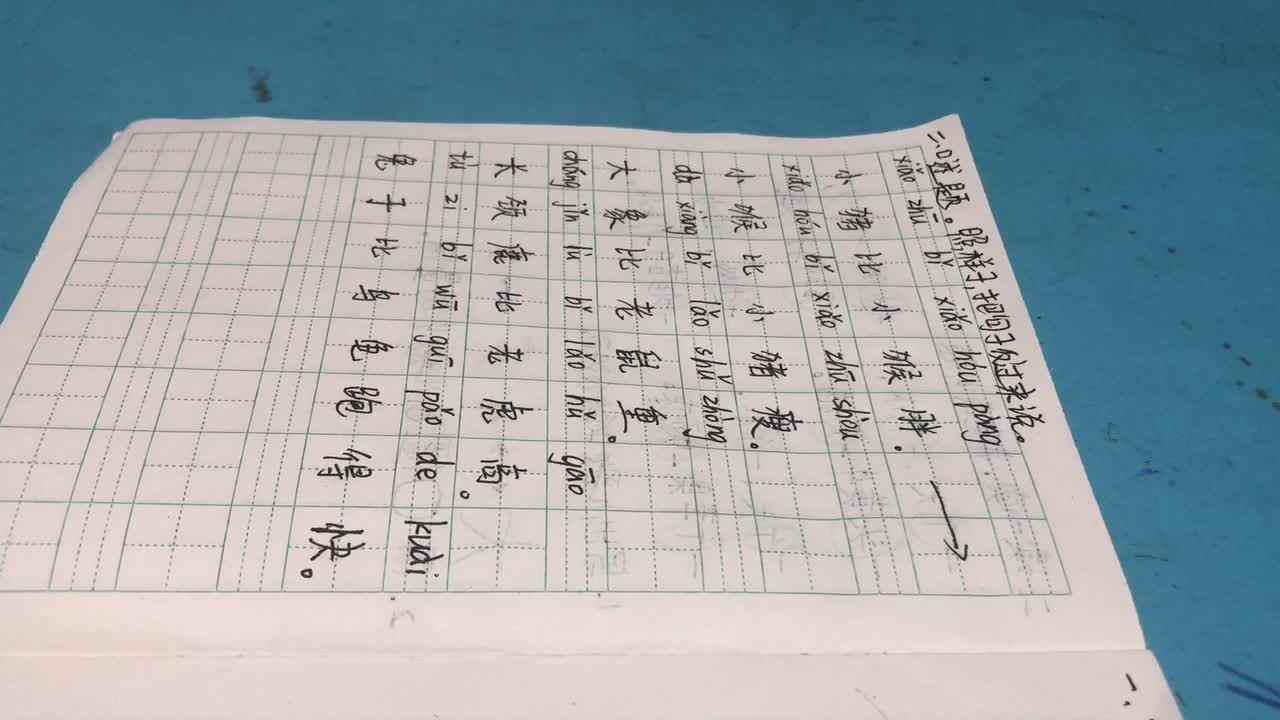 二、口试题。照样子把句子倒过来说。
xiǎo zhū bǐ xiǎo hóu pàng
小猪比小猴胖。
xiǎo hóu bǐ xiǎo zhū shòu
小猴比小猪瘦。
dà xiàng bǐ lǎo shǔ zhòng
大象比老鼠重。
cháng jǐn lù bǐ lǎo hǔ gāo
长颈鹿比老虎高。
tù zi bǐ wū guī pǎo de kuài
兔子比乌龟跑得快。
一、